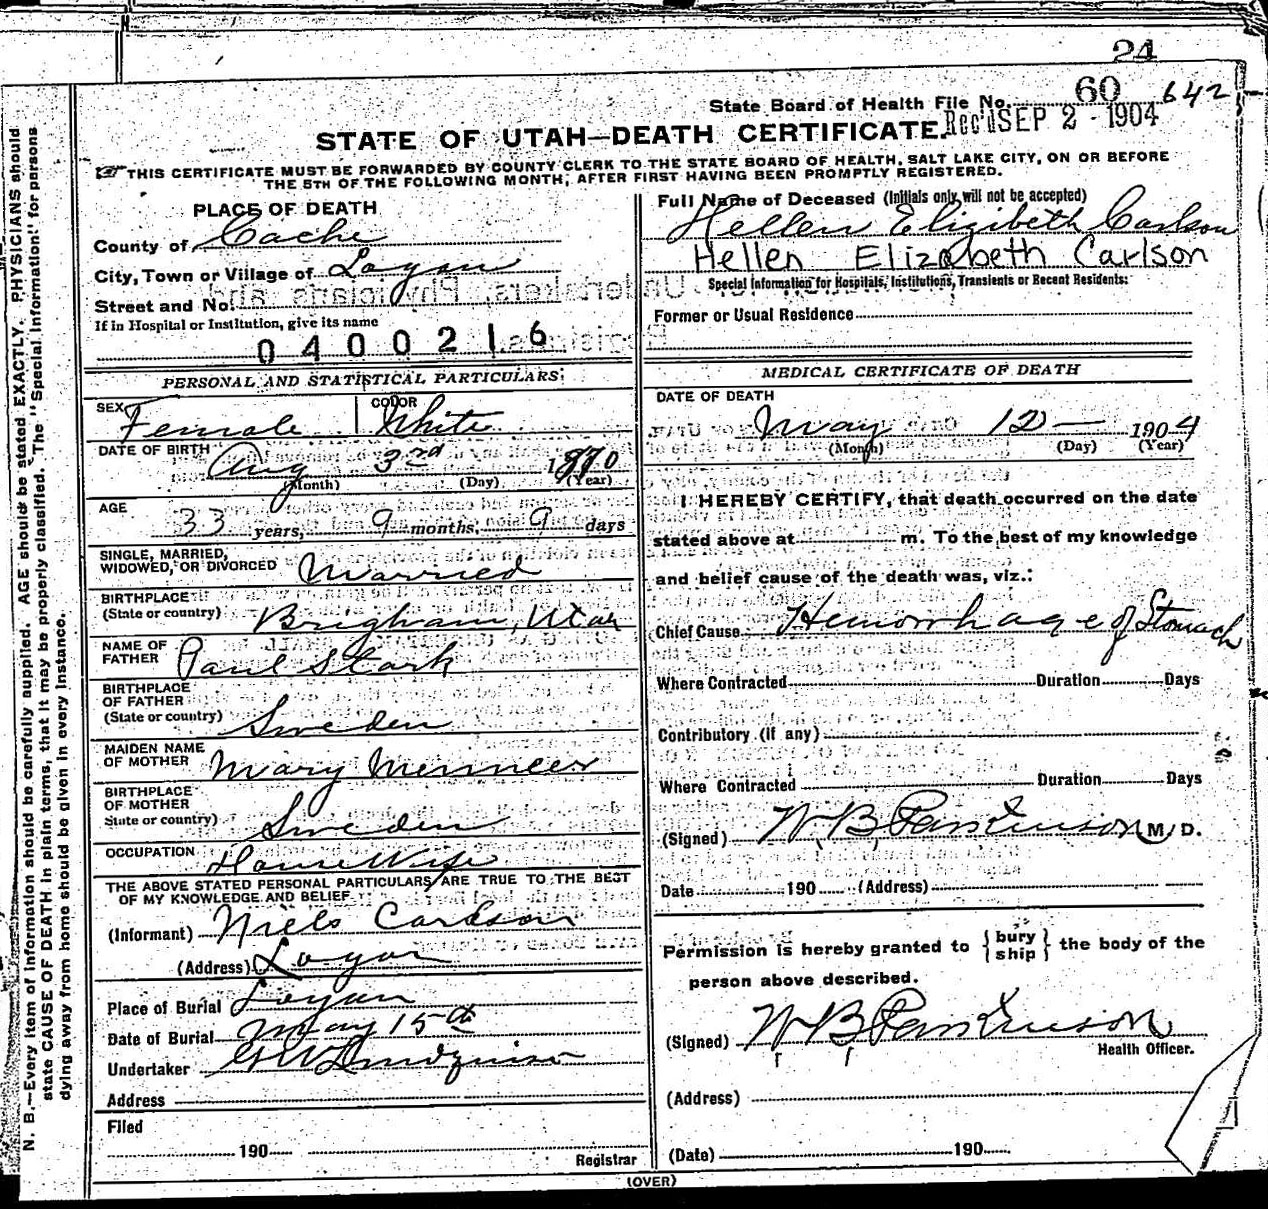 24
State Board of Health File No. 60 642
Rec'd SEP 2 - 1904
STATE OF UTAH—DEATH CERTIFICATE.
THIS CERTIFICATE MUST BE FORWARDED BY COUNTY CLERK TO THE STATE BOARD OF HEALTH, SALT LAKE CITY, ON OR BEFORE
THE 5TH OF THE FOLLOWING MONTH, AFTER FIRST HAVING BEEN PROMPTLY REGISTERED.
N. B.—Every item of information should be carefully supplied. AGE should be stated EXACTLY. PHYSICIANS should
state CAUSE OF DEATH in plain terms, that it may be properly classified. The "Special Information" for persons
dying away from home should be given in every instance.
PLACE OF DEATH
County of Cache
City, Town or Village of Logan
Street and No.
If in Hospital or Institution, give its name
0400216
PERSONAL AND STATISTICAL PARTICULARS
SEX Female COLOR White
DATE OF BIRTH Aug 3rd 1870
(Month) (Day) (Year)
AGE 33 years, 9 months, 9 days
SINGLE, MARRIED,
WIDOWED, OR DIVORCED Married
BIRTHPLACE
(State or country) Brigham, Utah
NAME OF
FATHER Paul Stark
BIRTHPLACE
OF FATHER
(State or country) Sweden
MAIDEN NAME
OF MOTHER Mary
BIRTHPLACE
OF MOTHER
State or country) Sweden
OCCUPATION House Wife
THE ABOVE STATED PERSONAL PARTICULARS ARE TRUE TO THE BEST
OF MY KNOWLEDGE AND BELIEF
(Informant) Niels Carlson
(Address) Logan
Place of Burial Logan
Date of Burial May 15th
Undertaker
Address
Filed
190
Registrar
Full Name of Deceased (Initials only will not be accepted)
Hellen Elizibeth Carlson
Hellen Elizabeth Carlson
Special Information for Hospitals, Institutions, Transients or Recent Residents:
Former or Usual Residence
MEDICAL CERTIFICATE OF DEATH
DATE OF DEATH
May 12 — 1904
(Month) (Day) (Year)
I HEREBY CERTIFY, that death occurred on the date
stated above at m. To the best of my knowledge
and belief cause of the death was, viz.:
Chief Cause Hemorrhage of Stomach
Where Contracted Duration Days
Contributory (if any)
Where Contracted Duration Days
(Signed) W B Parkinson M. D.
Date 190 (Address)
Permission is hereby granted to { bury
ship } the body of the
person above described.
(Signed) W B Parkinson
Health Officer.
(Address)
(Date) 190
(OVER)